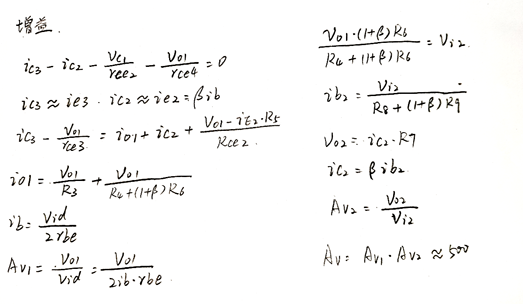 增益.
ic3 - ic2 - Vc1/rce2 - Vo1/rce4 = 0
ic3 ≈ ie3 . ic2 ≈ ie2 = βib
ic3 - Vo1/rce3 = io1 + ic2 + (Vo1 - iE2·R5)/Rce2
io1 = Vo1/R3 + Vo1/(R4+(1+β)R6)
ib = Vid/2rbe
Av1 = Vo1/Vid = Vo1/(2ib·rbe)
Vo1·(1+β)R6/(R4+(1+β)R6) = Vi2.
ib2 = Vi2/(R8+(1+β)R9)
Vo2 = ic2·R7
ic2 = βib2
Av2 = Vo2/Vi2
Av = Av1·Av2 ≈ 500